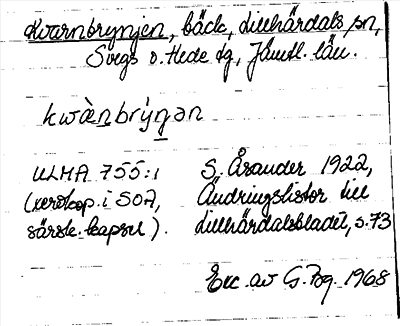 Kvarnbrynjen, bäck, Lillhärdals sn,
Svegs o. Hede tg, Jämtl. län.
kwànbrýŋən
ULMA 755:1 S. Åsander 1922,
(xerokop. i SOA, Ändringslistor till
särsk. kapsel). Lillhärdalsbladet, s. 73
Exc. av G. Pg. 1968